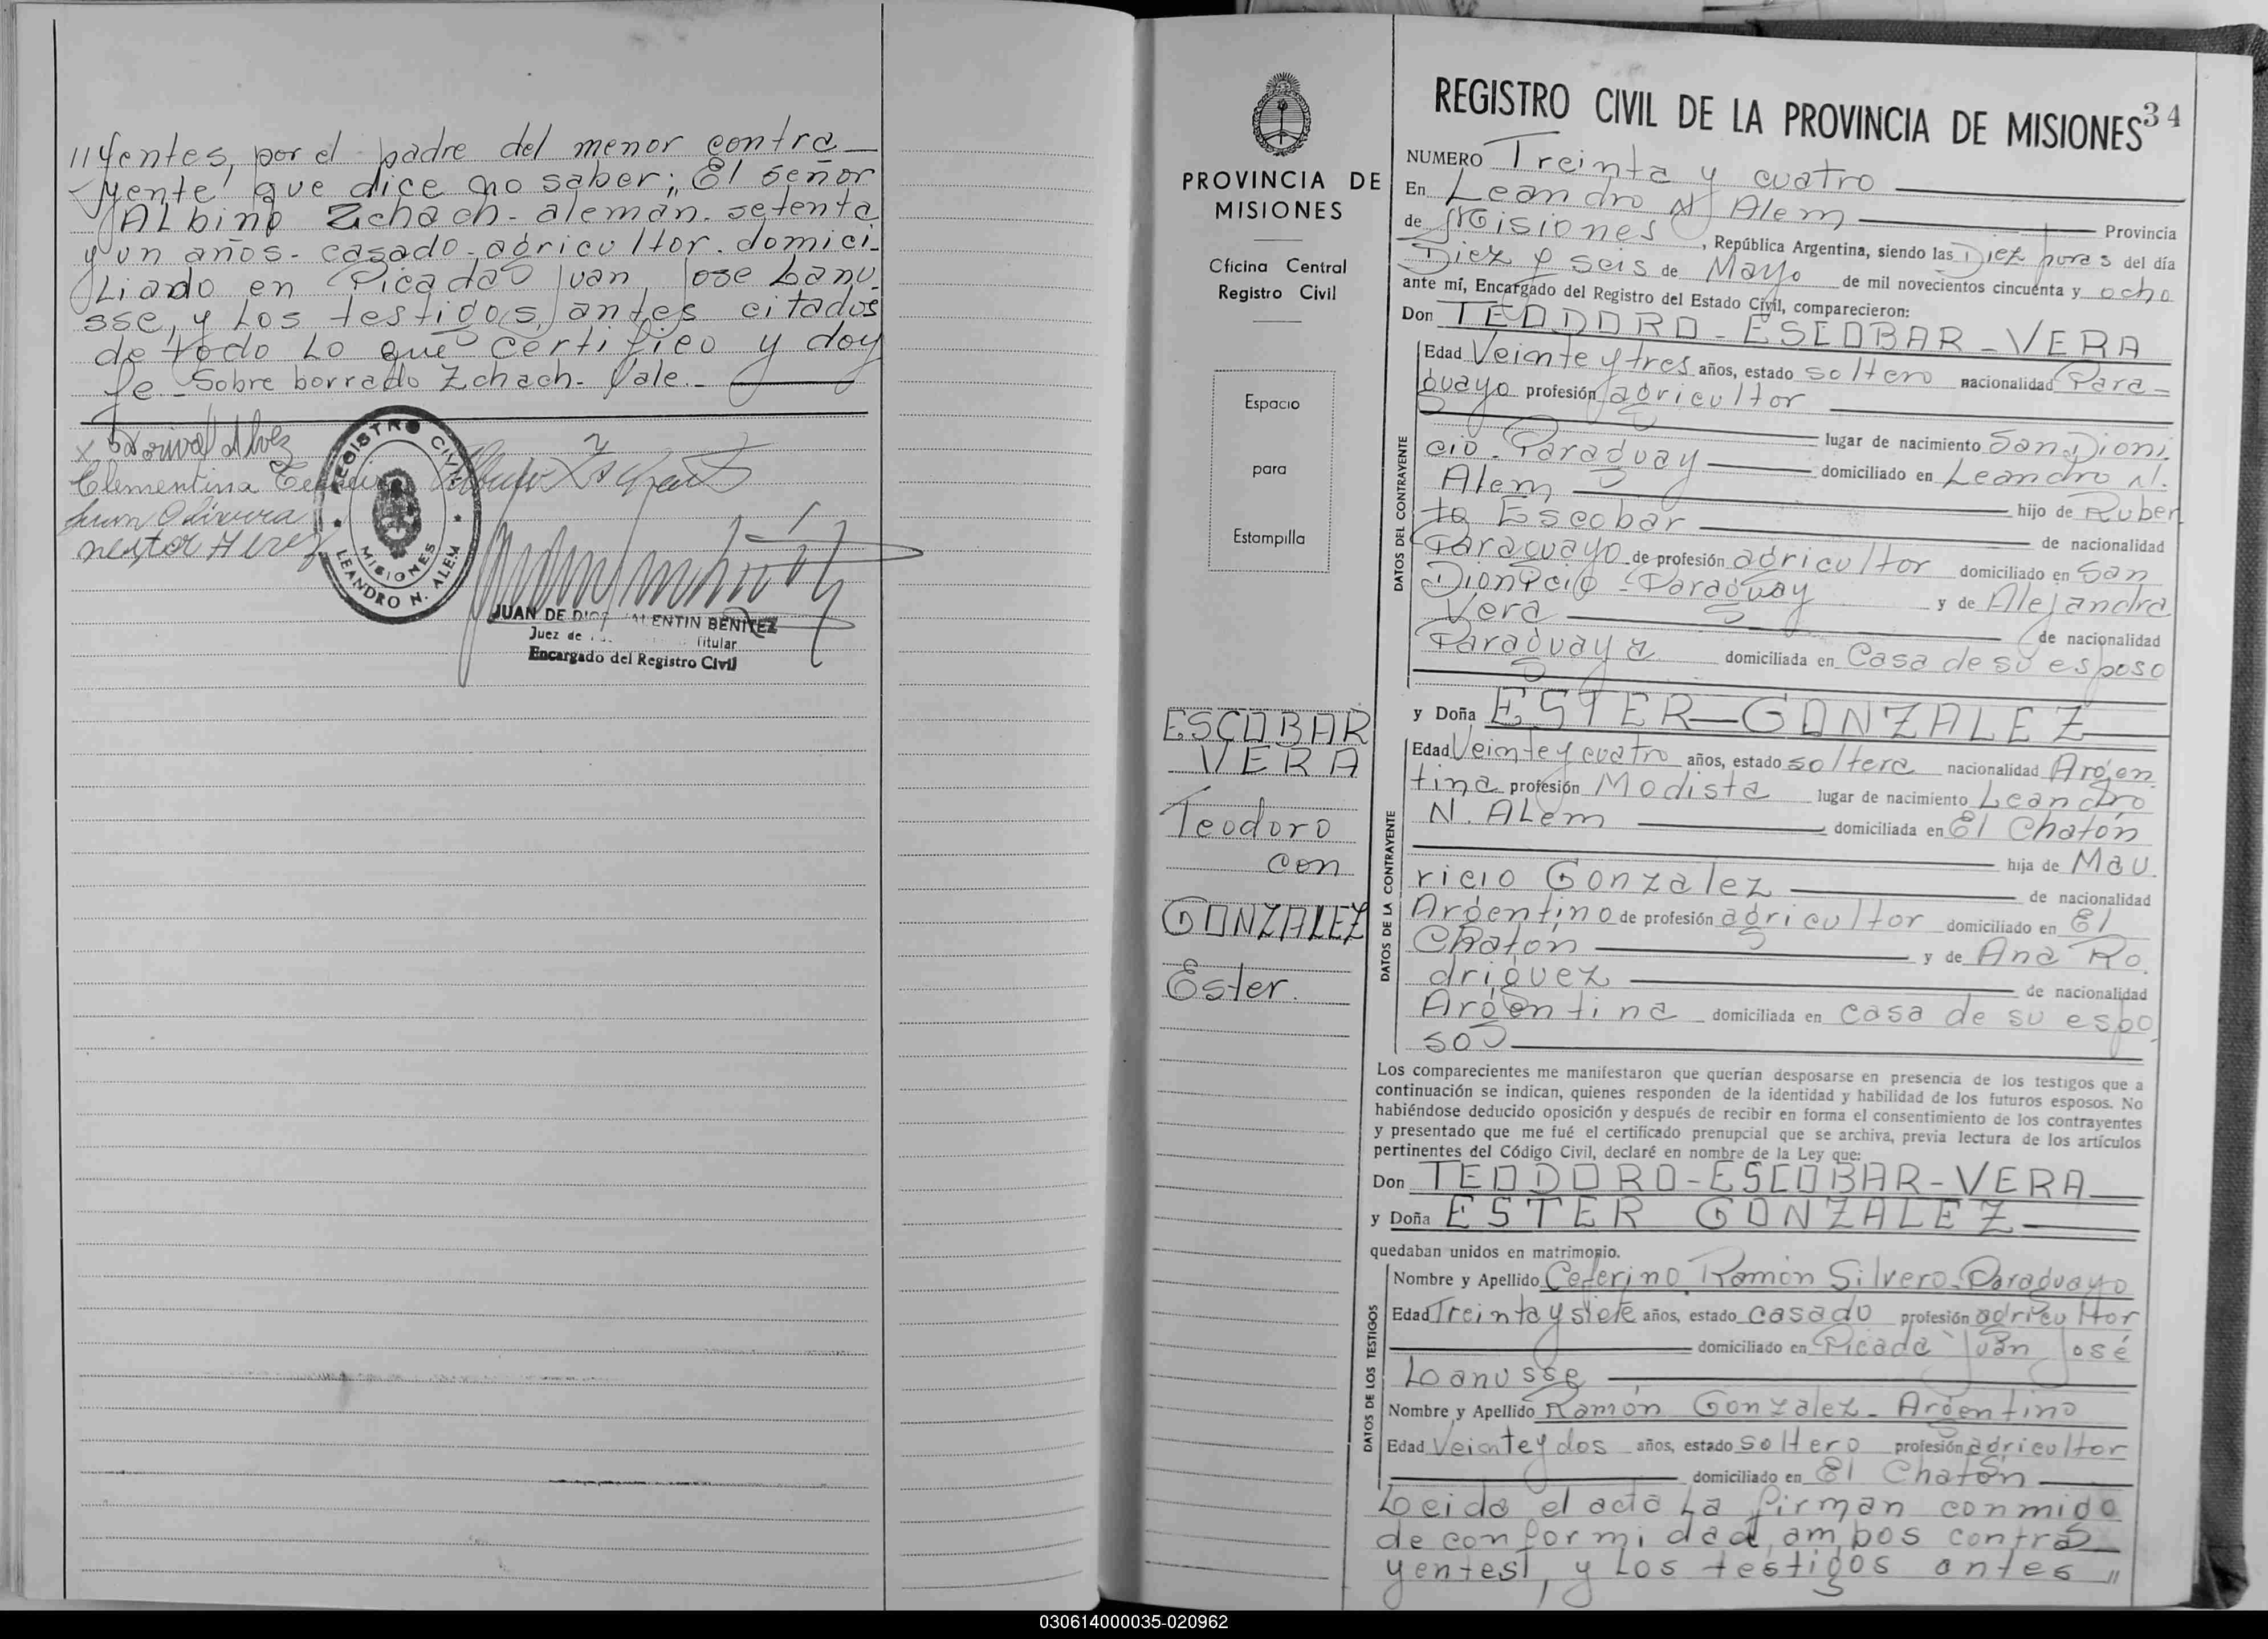 11 yentes, por el padre del menor contra
yente que dice no saber; El señor
Albino Zchach - aleman - setenta
y un años - casado - agricultor - domici
liado en Picada Juan Jose Lanu
sse, y los testigos, antes citados
de todo lo que certifico y doy
fe - Sobre borrado Zchach - Vale -
x Dorival Alvez
Clementina
Juan Olivera
nestor Alvez
REGISTRO CIVIL
MISIONES
LEANDRO N. ALEM
JUAN DE DIOS VALENTIN BENITEZ
Juez de Titular
Encargado del Registro Civil
PROVINCIA DE
MISIONES
Oficina Central
Registro Civil
Espacio
para
Estampilla
ESCOBAR
VERA
Teodoro
con
GONZALEZ
Ester.
REGISTRO CIVIL DE LA PROVINCIA DE MISIONES 34
NUMERO Treinta y cuatro
En Leandro N Alem
Provincia
de Misiones, República Argentina, siendo las Diez horas del día
Diez y seis de Mayo de mil novecientos cincuenta y ocho
ante mí, Encargado del Registro del Estado Civil, comparecieron:
Don TEODORO - ESCOBAR - VERA
DATOS DEL CONTRAYENTE
Edad Veinte y tres años, estado soltero nacionalidad Para=
guayo profesión agricultor
lugar de nacimiento San Dioni
cio - Paraguay domiciliado en Leandro N.
Alem hijo de Ruber
to Escobar de nacionalidad
Paraguayo de profesión agricultor domiciliado en San
Dionicio - Paraguay y de Alejandra
Vera de nacionalidad
Paraguaya domiciliada en Casa de su esposo
y Doña ESTER GONZALEZ
DATOS DE LA CONTRAYENTE
Edad Veinte y cuatro años, estado soltera nacionalidad Argen
tina profesión Modista lugar de nacimiento Leandro
N. Alem domiciliada en El Chatón
hija de Mau
ricio Gonzalez de nacionalidad
Argentino de profesión agricultor domiciliado en El
Chatón y de Ana Ro
driguez de nacionalidad
Argentina domiciliada en casa de su espo
so
Los comparecientes me manifestaron que querían desposarse en presencia de los testigos que a
continuación se indican, quienes responden de la identidad y habilidad de los futuros esposos. No
habiéndose deducido oposición y después de recibir en forma el consentimiento de los contrayentes
y presentado que me fué el certificado prenupcial que se archiva, previa lectura de los artículos
pertinentes del Código Civil, declaré en nombre de la Ley que:
Don TEODORO - ESCOBAR - VERA
y Doña ESTER GONZALEZ
quedaban unidos en matrimonio.
DATOS DE LOS TESTIGOS
Nombre y Apellido Ceferino Ramón Silvero - Paraguayo
Edad Treinta y siete años, estado casado profesión agricultor
domiciliado en Picada Juan José
Lanusse
Nombre y Apellido Ramón Gonzalez - Argentino
Edad Veinte y dos años, estado soltero profesión agricultor
domiciliado en El Chatón
Leida el acta la firman conmigo
de conformidad, ambos contra
yentes, y los testigos antes "
030614000035-020962